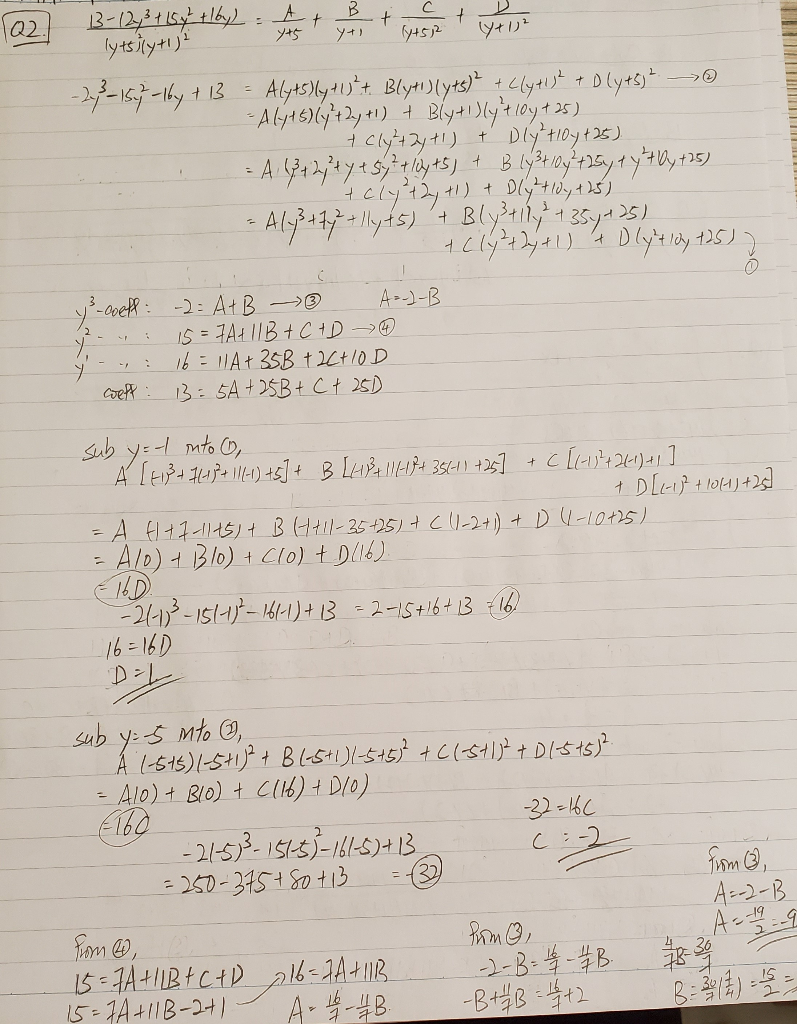 Q2. (13-(2y³+15y²+16y))/((y+5)²(y+1)²) = A/(y+5) + B/(y+1) + C/(y+5)² + D/(y+1)²
-2y³-15y²-16y+13 = A(y+5)(y+1)² + B(y+1)(y+5)² + C(y+1)² + D(y+5)² → ②
= A(y+5)(y²+2y+1) + B(y+1)(y²+10y+25)
+ C(y²+2y+1) + D(y²+10y+25)
= A(y³+2y²+y+5y²+10y+5) + B(y³+10y²+25y+y²+10y+25)
+ C(y²+2y+1) + D(y²+10y+25)
= A(y³+7y²+11y+5) + B(y³+11y²+35y+25)
+ C(y²+2y+1) + D(y²+10y+25) ①
y³-coeff: -2 = A+B → ③ A=-2-B
y² - " : 15 = 7A+11B+C+D → ④
y¹ - " : 16 = 11A+35B+2C+10D
coeff: 13 = 5A+25B+C+25D
sub y=-1 into ①,
A[(-1)³+7(-1)²+11(-1)+5] + B[(-1)³+11(-1)²+35(-1)+25] + C[(-1)²+2(-1)+1]
+ D[(-1)²+10(-1)+25]
= A(-1+7-11+5) + B(-1+11-35+25) + C(1-2+1) + D(1-10+25)
= A(0) + B(0) + C(0) + D(16)
= 16D
-2(-1)³-15(-1)²-16(-1)+13 = 2-15+16+13 = 16
16=16D
D=1
sub y=-5 into ②,
A(-5+5)(-5+1)² + B(-5+1)(-5+5)² + C(-5+1)² + D(-5+5)²
= A(0) + B(0) + C(16) + D(0)
= 16C
-2(-5)³-15(-5)²-16(-5)+13
= 250-375+80+13 = -32
-32=16C
C=-2
From ④,
15=7A+11B+C+D
15=7A+11B-2+1
16=7A+11B
A=16/7-11/7B
From ③,
-2-B=16/7-11/7B
-B+11/7B=16/7+2
4/7B=30/7
B=30/7(7/4)=15/2=
From ③,
A=-2-B
A=-19/2=-9